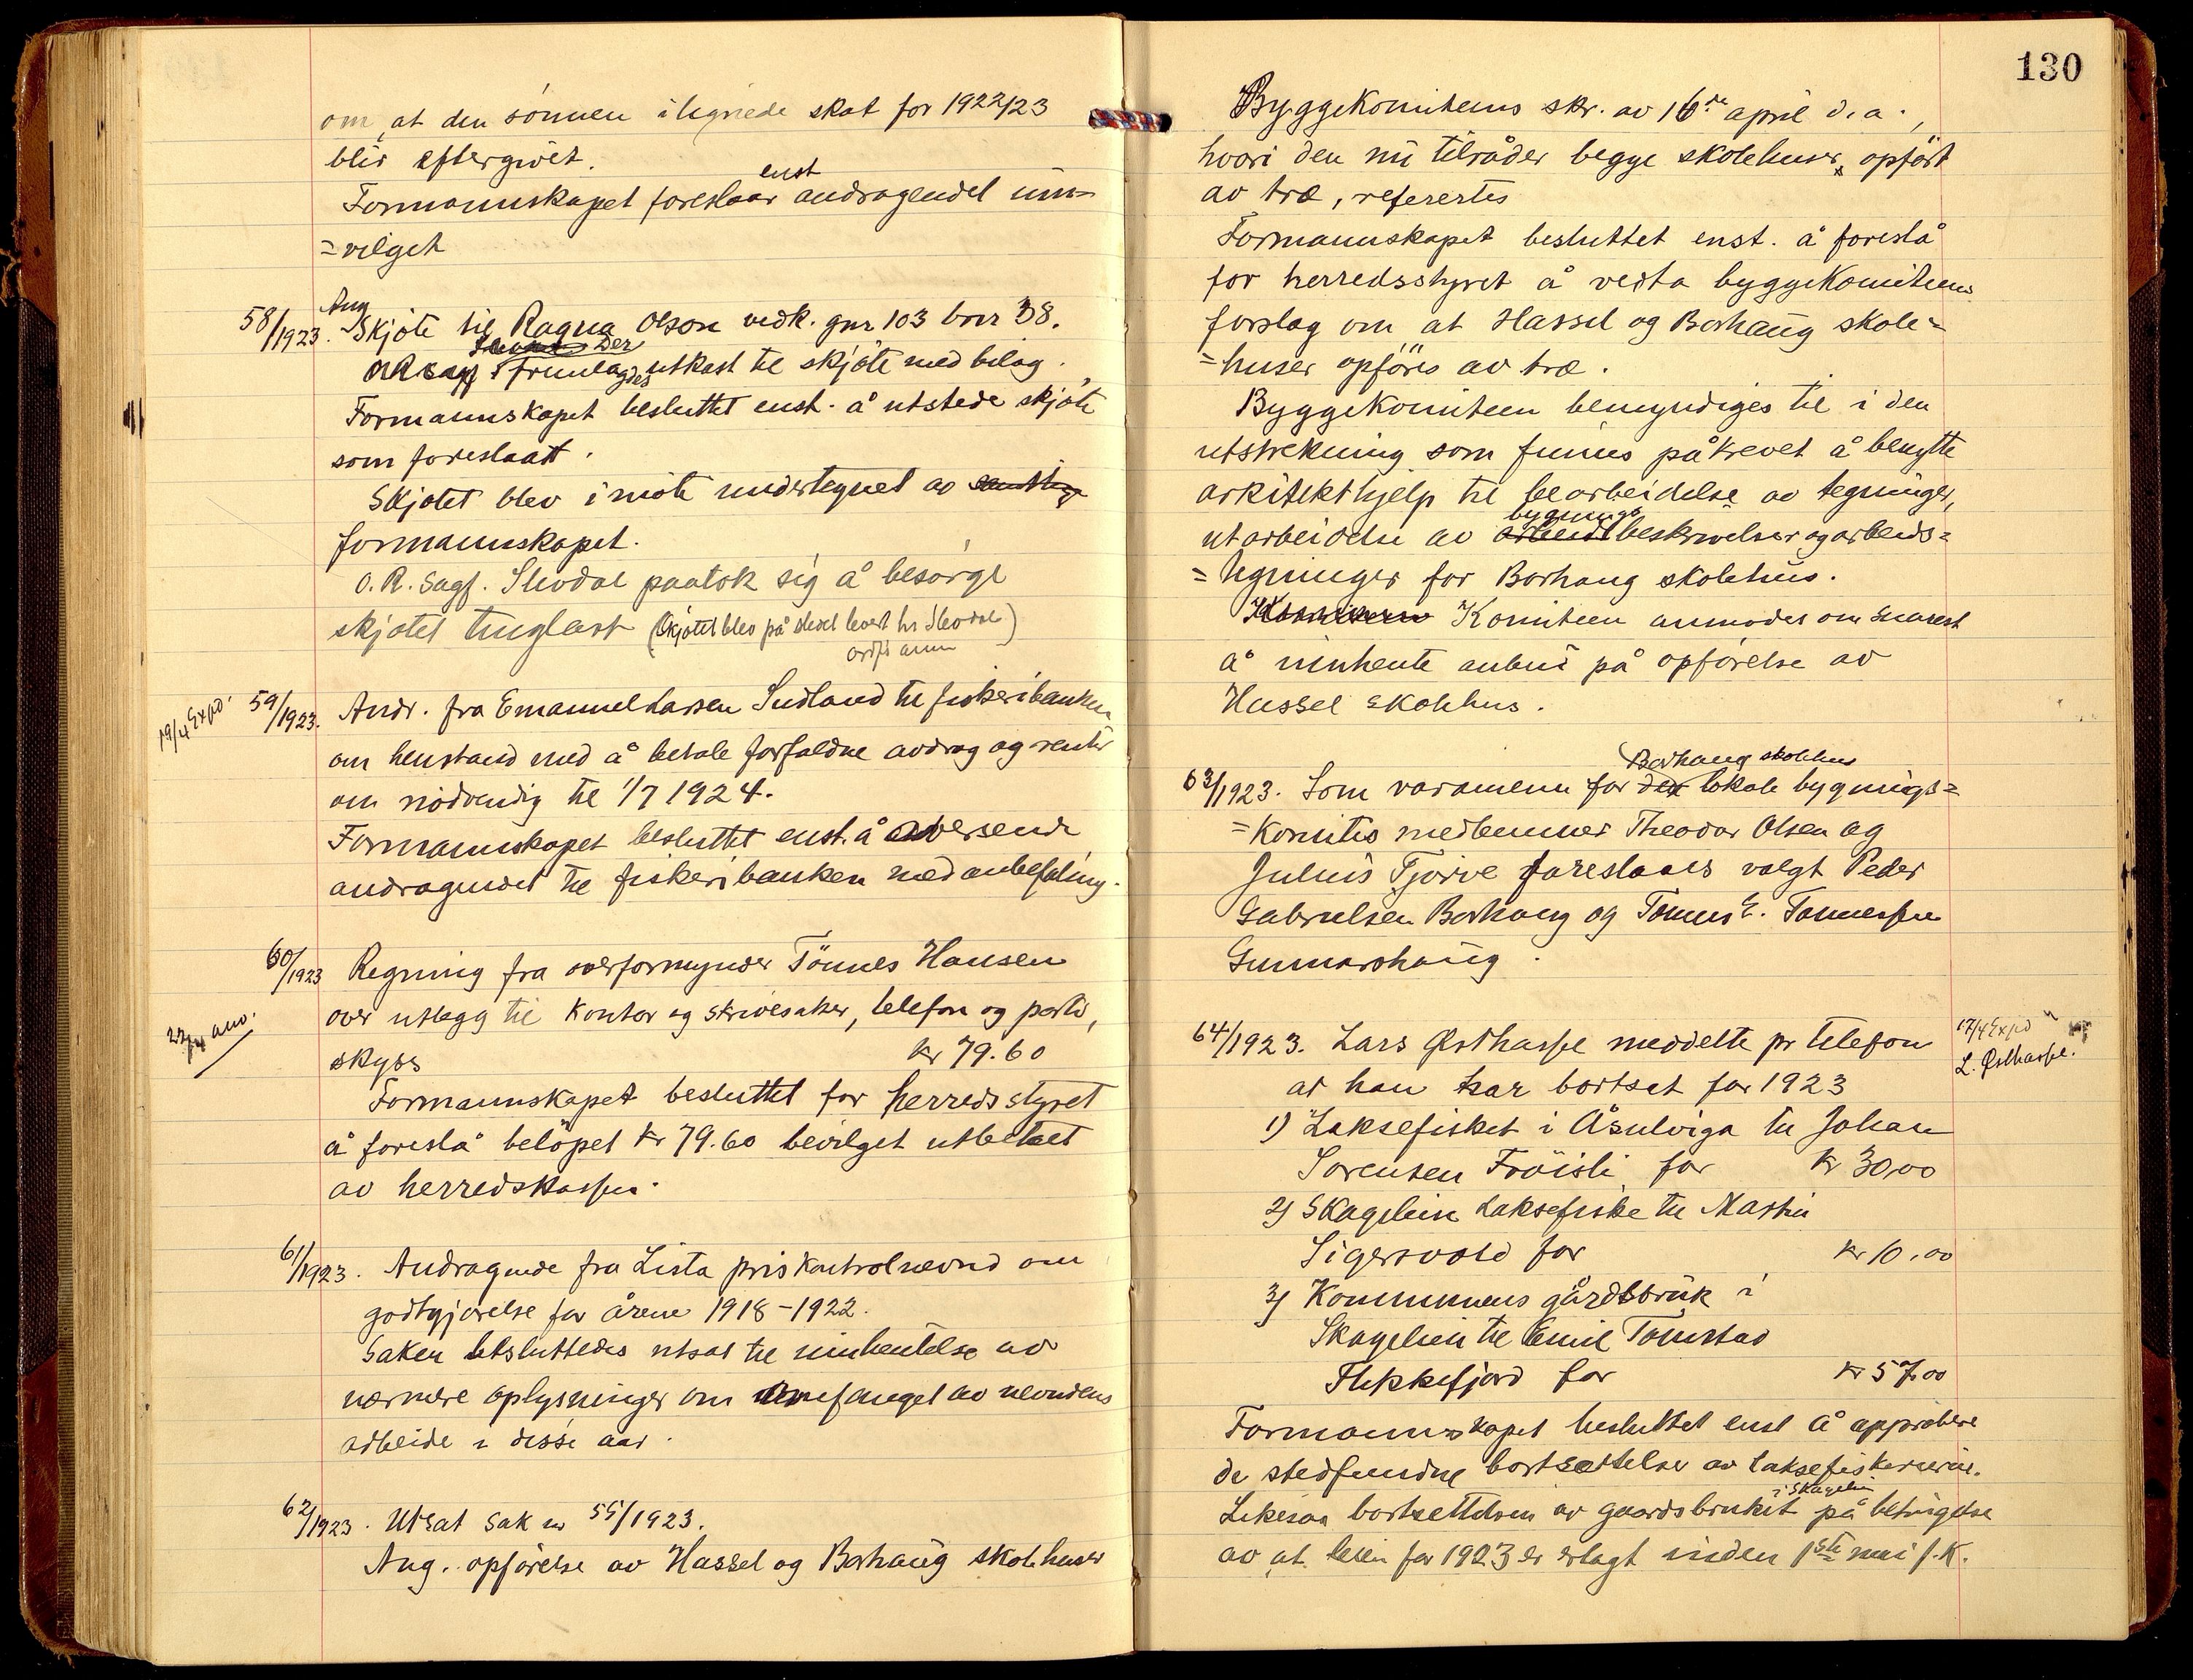 om at den sönnen ilignede skat for 1922/23
blir eftergivet.
Formannskapet foreslaar enst andragendet inn=
=vilget
58/1923. Ang Skjöte til Ragna Olson vedk. gnr 103 bnr 38.
Der fremlagdes utkast til skjöte med bilag.
Formannskapet besluttet enst. å utstede skjöte
som foreslaatt.
Skjötet blev i möte undertegnet av
formannskapet.
O.R. Sagf. Skodal paatok sig å besörge
skjötet tinglæst (Skjötet blev på stedet levert hr Skodal)
59/1923. Andr. fra Emanuel Larsen Sudland til fiskeribanken
19/4 Expd.
om henstand med å betale forfaldne avdrag og renter
om nödvendig til 1/7 1924.
Formannskapet besluttet enst. å oversende
andragendet til fiskeribanken med anbefaling.
60/1923 Regning fra overformynder Tönnes Hansen
over utlegg til kontor og skrivesaker, telefon og porto,
23/4 anv.
skyss kr 79.60
Formannskapet besluttet for herredsstyret
å foreslå belöpet kr 79.60 bevilget utbetalt
av herredskassen.
61/1923. Andragende fra Lista priskontrolnevnd om
godtgjörelse for årene 1918-1922.
Saken besluttedes utsat til innhentelse av
nærmere oplysninger om omfanget av nevndens
arbeide i disse aar.
62/1923. Utsat sak nr 55/1923.
Ang. opförelse av Hassel og Borhaug skolehuser
130
Byggekomiteens skr. av 16de april d.a.,
hvori den nu tilråder begge skolehuser opfört
av træ, refertes
Formannskapet besluttet enst. å foreslå
for herredsstyret å vedta byggekomiteens
forslag om at Hassel og Borhaug skole=
=huser opföres av træ.
Byggekomiteen bemyndiges til i den
utstrekning som finnes påkrevet å benytte
arkitekthjelp til bearbeidelse av tegninger,
utarbeidelse av bygnings beskrivelser og arbeids=
=tegninger for Borhaug skolehus.
Komiteen anmodes om snarest
å innhente anbud på opförelse av
Hassel skolehus.
63/1923. Som varamenn for Borhaug skolehus lokale bygnings=
=komites medlemmer Theodor Olsen og
Julius Tjörve foreslaaes valgt Peder
Gabrielsen Borhaug og Tönnes E. Tönnessen
Gunnarshaug.
64/1923. Lars Østhassel meddelte pr telefon
17/4 Expd
L. Østhassel.
at han har bortsat for 1923
1) Laksefisket i Åsulviga til Johan
Sorensen Fröisli for kr 30,00
2) Skagelein Laksefiske til Martin
Sigersvold for kr 10.00
3) Kommunens gårdsbruk i
Skagelein til Emil Tomstad
Flekkefjord for kr 57,00
Formannskapet besluttet enst å approbere
de stedfundne bortsættelser av laksefiskeriene.
Likesaa bortsettelsen av gaardsbruket i Skagelein på betingelse
av at leien for 1923 er erlagt inden 1ste mai f.k.